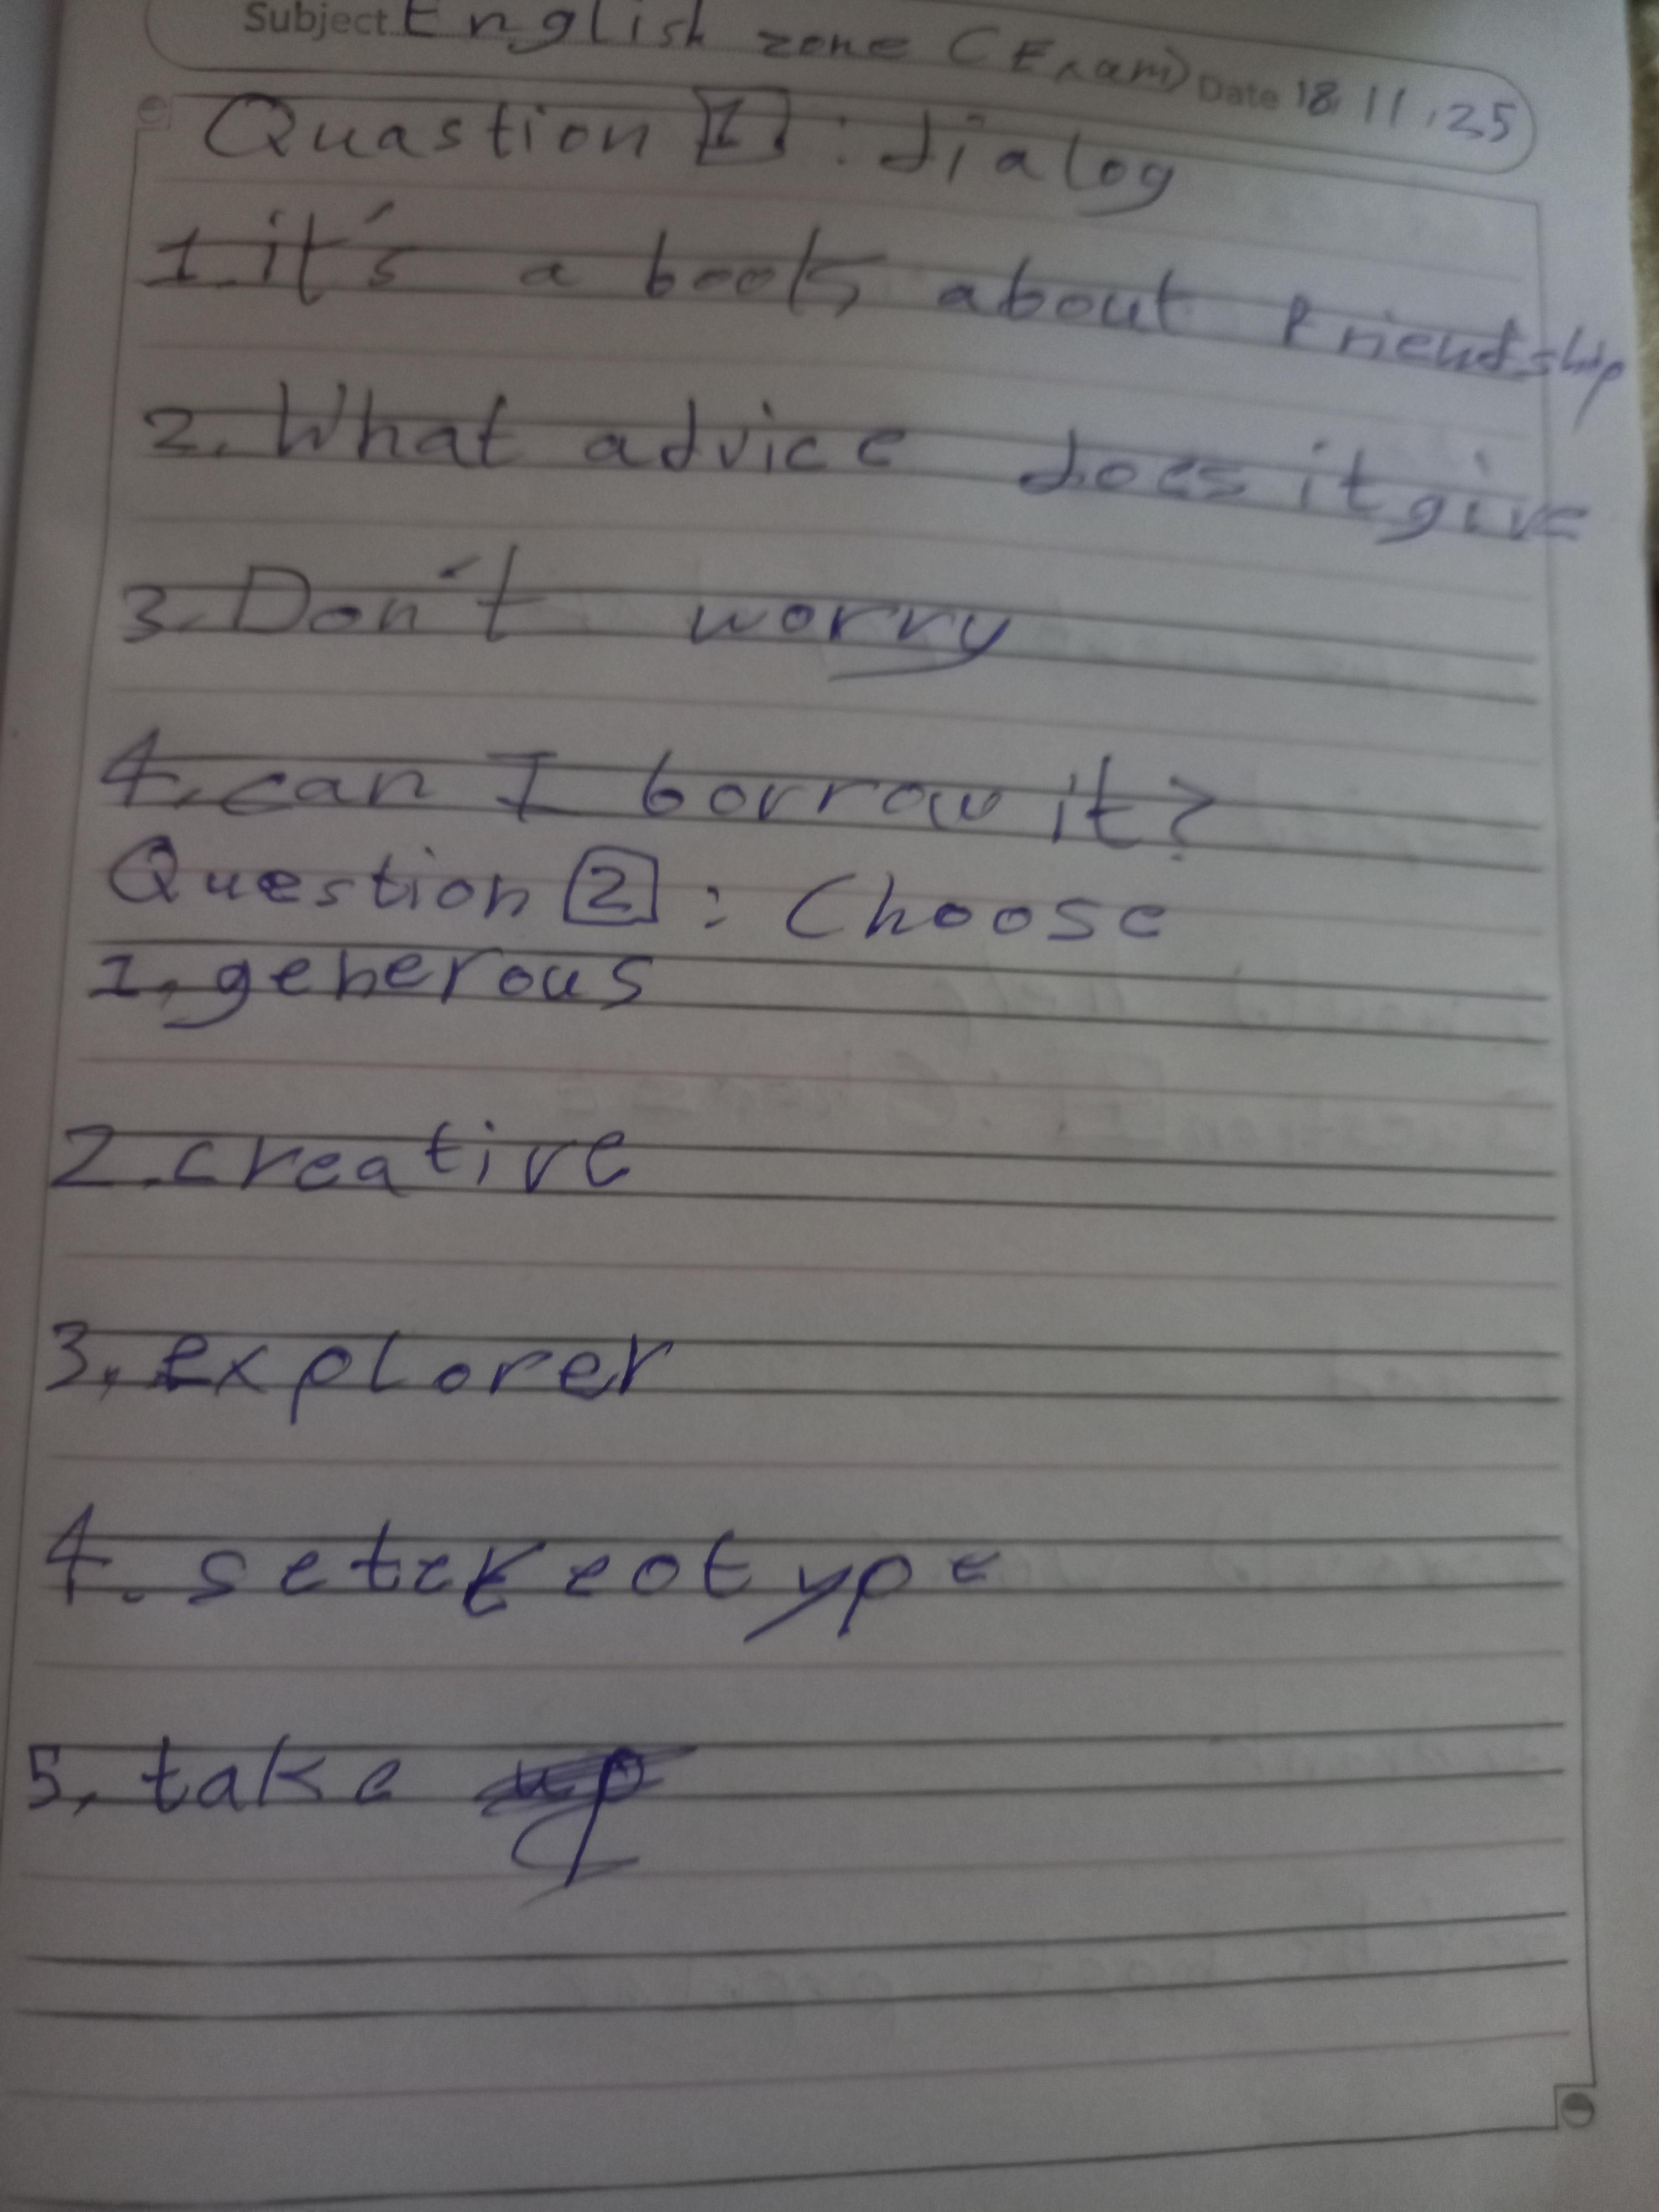 Subject English zone (Exam) Date 18 11 .25
Quastion 1 : dialog
1. it's a book about Friendship
2. What advice does it give
3. Don't worry
4. can I borrow it?
Question 2 : Choose
1. generous
2. creative
3. explorer
4.
5. take